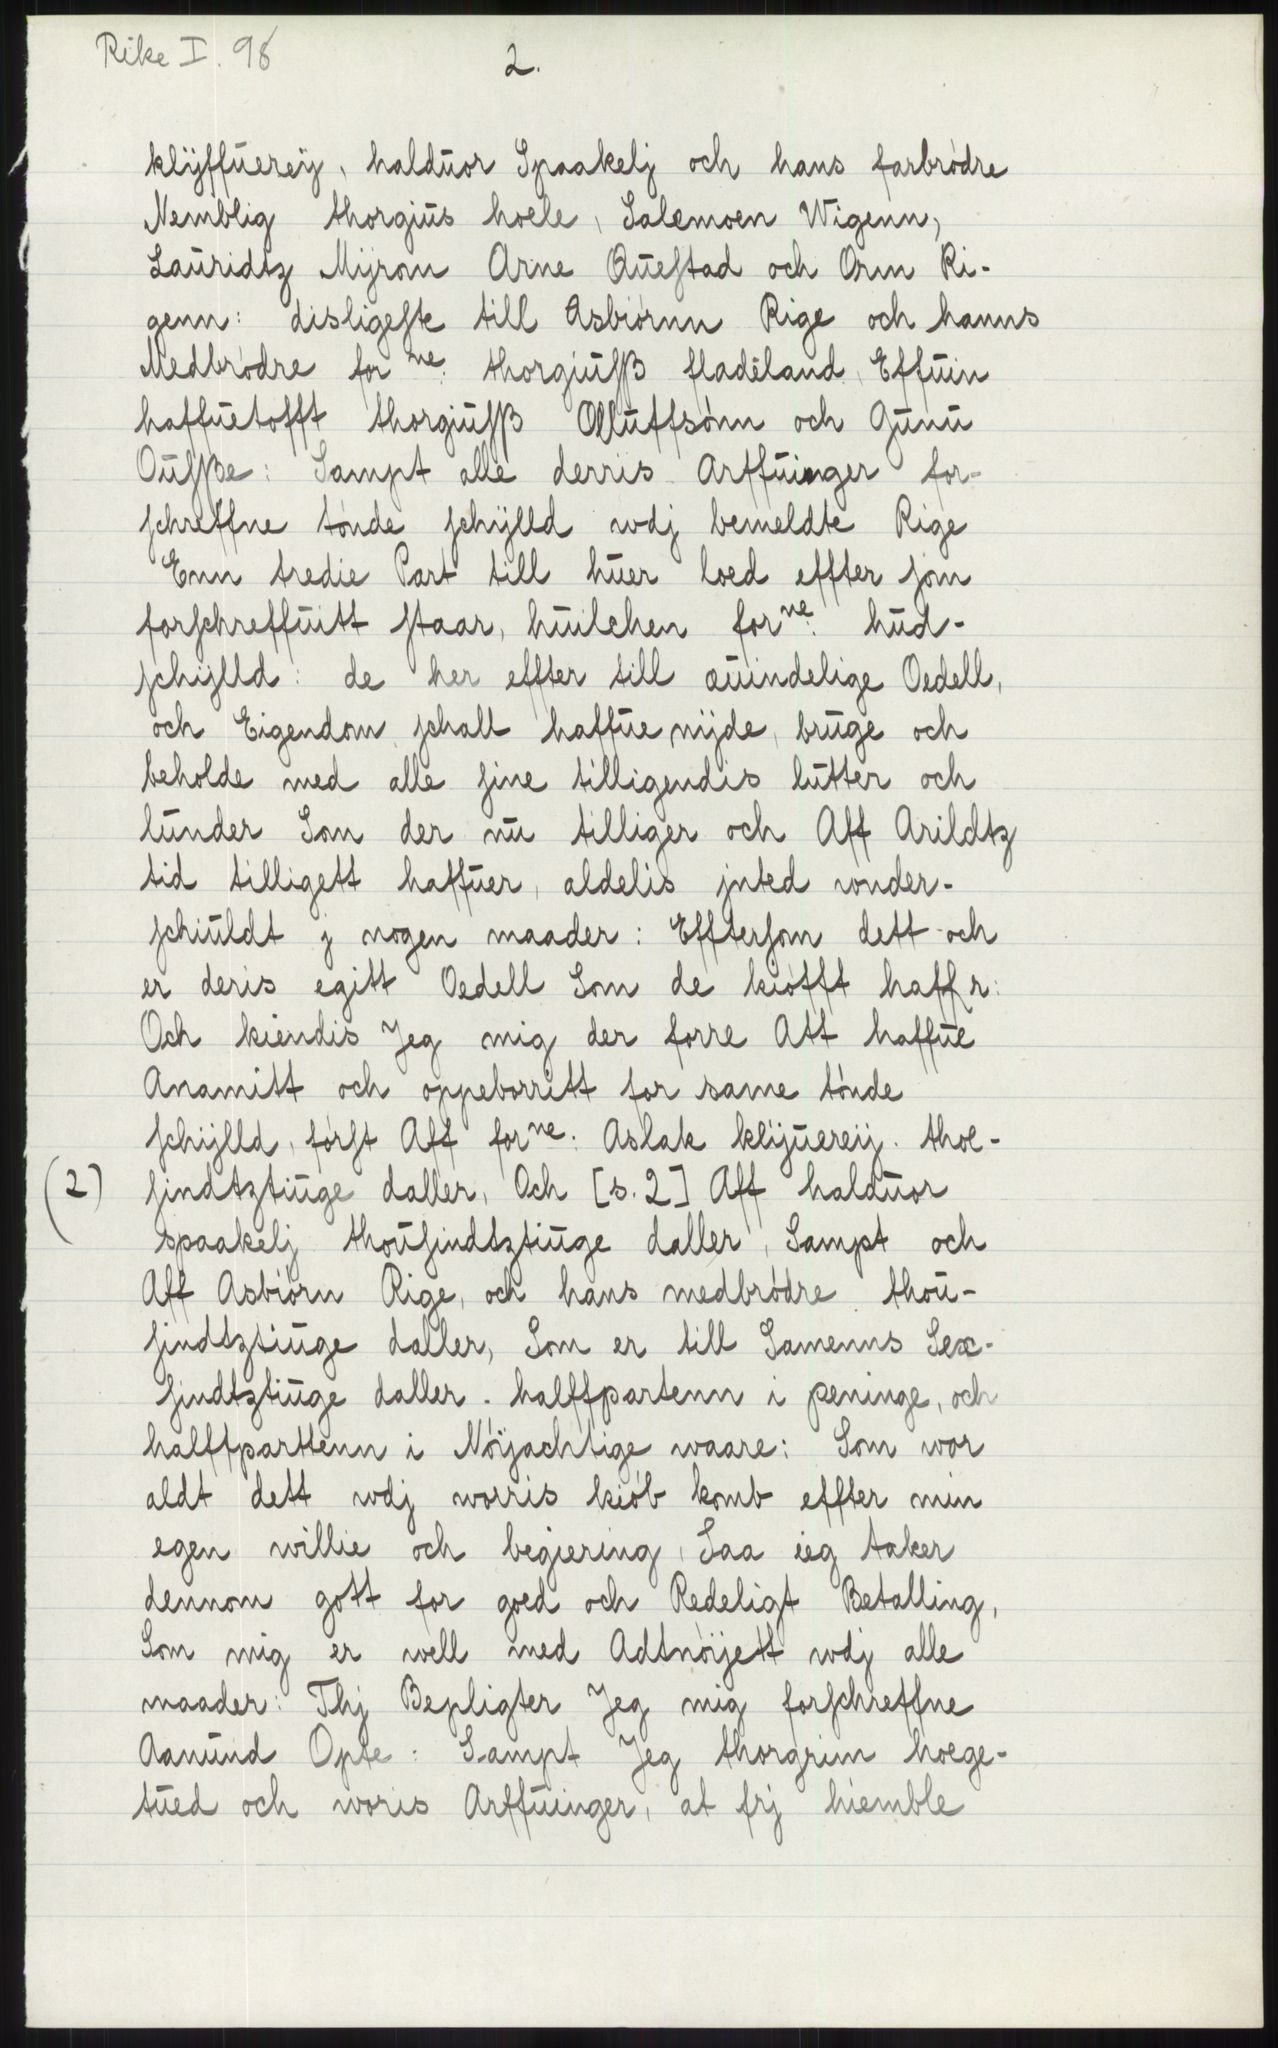 Rike I. 98
2.
klÿffuereÿ, halduor Spaakelj och hans farbrødre
Nemblig thorgius hoele, Salemoen Wigenn,
Lauridtz Mÿron Arne Queſtad och Orm Ri-
genn: disligeſte till Asbiørnn Rige och hanns
Medbrødre for ne: thorgiuſß fladeland, Effuin
haffuetofft thorgiuſß Olluffsønn och Gunu
Ouſße: Sampt alle derris Arffuinger for-
ſchreffne tønde ſchÿlld wdj bemeldte Rige
Enn tredie Part till huer loed effter ſom
forſchreffuitt ſtaar, huilchen forne: hud-
ſchÿlld: de her effter till æuindelige Oedell,
och Eigendom ſchall haffue nÿde, bruge och
beholde med alle ſine tilligendis lutter och
lunder Som der nu tilliger och Aff Arildtz
tid tilligett haffuer, aldelis jnted wonder-
ſchiuldt j nogen maader: Effterſom dett och
er deris egitt Oedell Som de kiøfft haff r:
Och kiendis Jeg mig der forre Att haffue
Anamitt och oppeborritt for same tønde
ſchÿlld, førſt Aff forne: Aslak klÿuereÿ. thoe-
(2) ſindtztiuge daller, Och [s. 2] Aff halduor
spaakelj thouſindtztiuge daller, Sampt och
Aff Asbiørn Rige, och hans medbrødre thou-
ſindtztiuge daller, Som er till Samenns Sex-
ſindtztiuge daller. halffpartenn i peninge, och
halffparttenn i Nøÿachtige waare: Som wor
aldt dett wdj worris kiøb komb effter min
egen willie och begiering, Saa ieg taker
dennom gott for goed och Redeligt Betalling,
Som mig er well med Adtnøÿett wdj alle
maader: Thj Bepligter Jeg mig forſchreffne
Aanund Opte: Sampt Jeg thorgrim hoege-
tued och woris Arffuinger, at frj hiemble